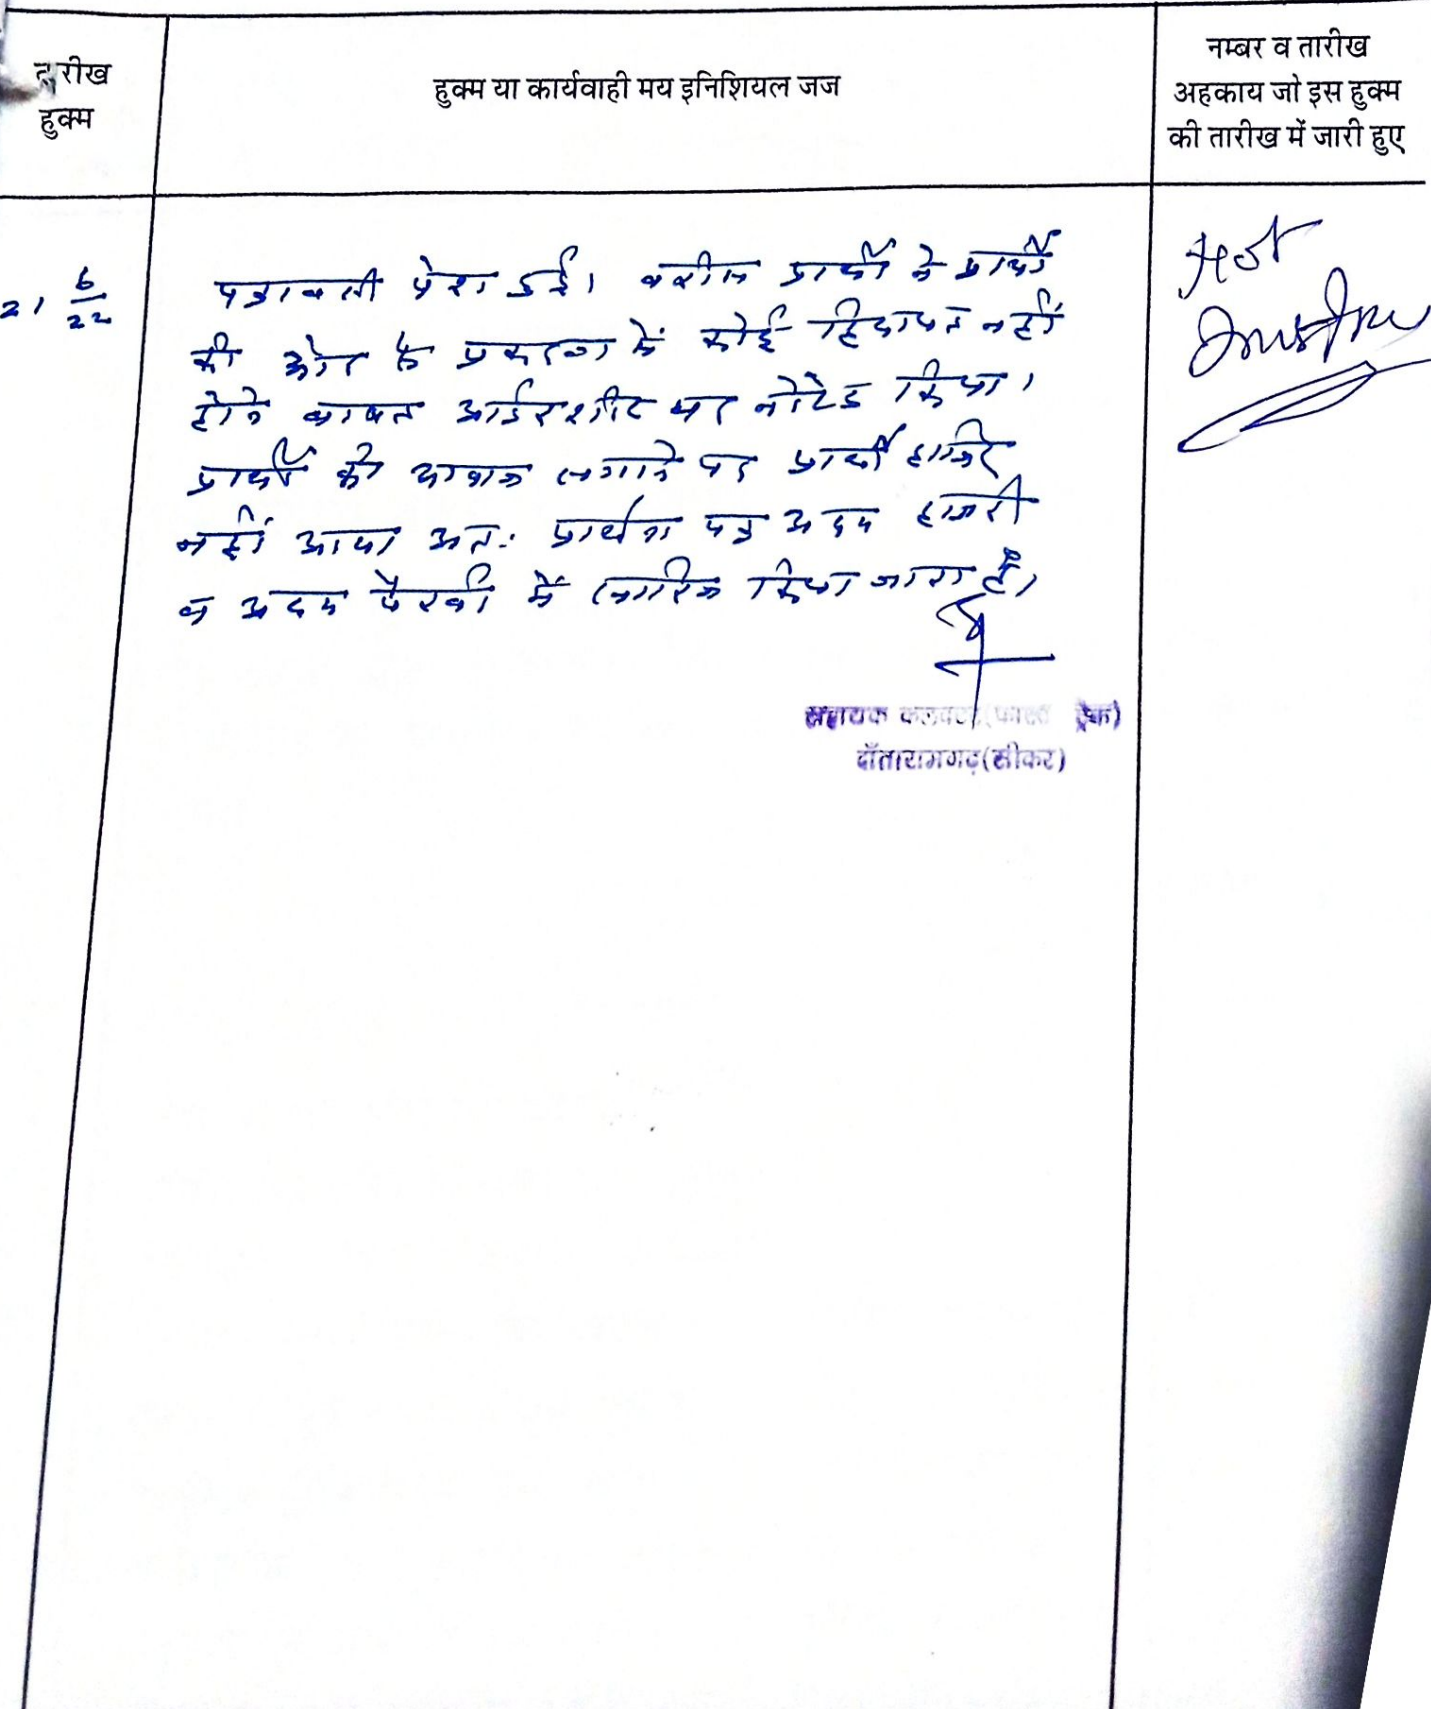 तारीख
हुक्म
हुक्म या कार्यवाही मय इनिशियल जज
नम्बर व तारीख
अहकाय जो इस हुक्म
की तारीख में जारी हुए
21 6/22
पत्रावली पेश हुई। वकील प्रार्थी ने प्रार्थी
की ओर से प्रकरण में कोई हिदायत नहीं
होने बाबत आर्डरशीट पर नोटेड किया।
प्रार्थी को आवाज लगाने पर प्रार्थी हाजिर
नहीं आया अतः प्रार्थना पत्र अदम हाजरी
व अदम पैरवी में खारिज किया जाता है।
सहायक कलक्टर(फास्ट ट्रेक)
दाँतारामगढ़(सीकर)